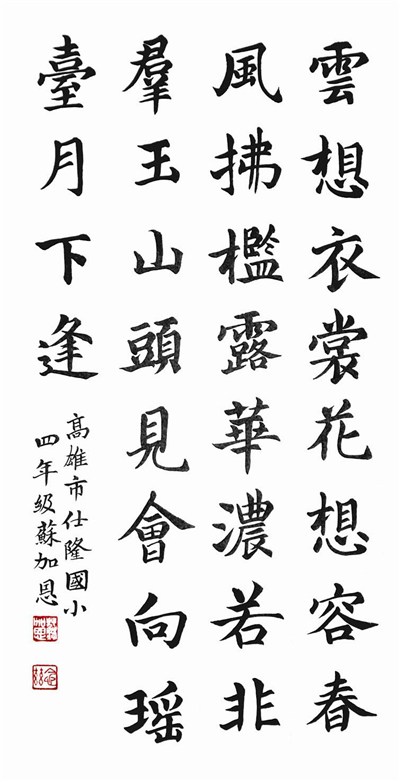 雲想衣裳花想容春
風拂檻露華濃若非
羣玉山頭見會向瑶
臺月下逢
高雄市仕隆國小
四年級蘇加恩